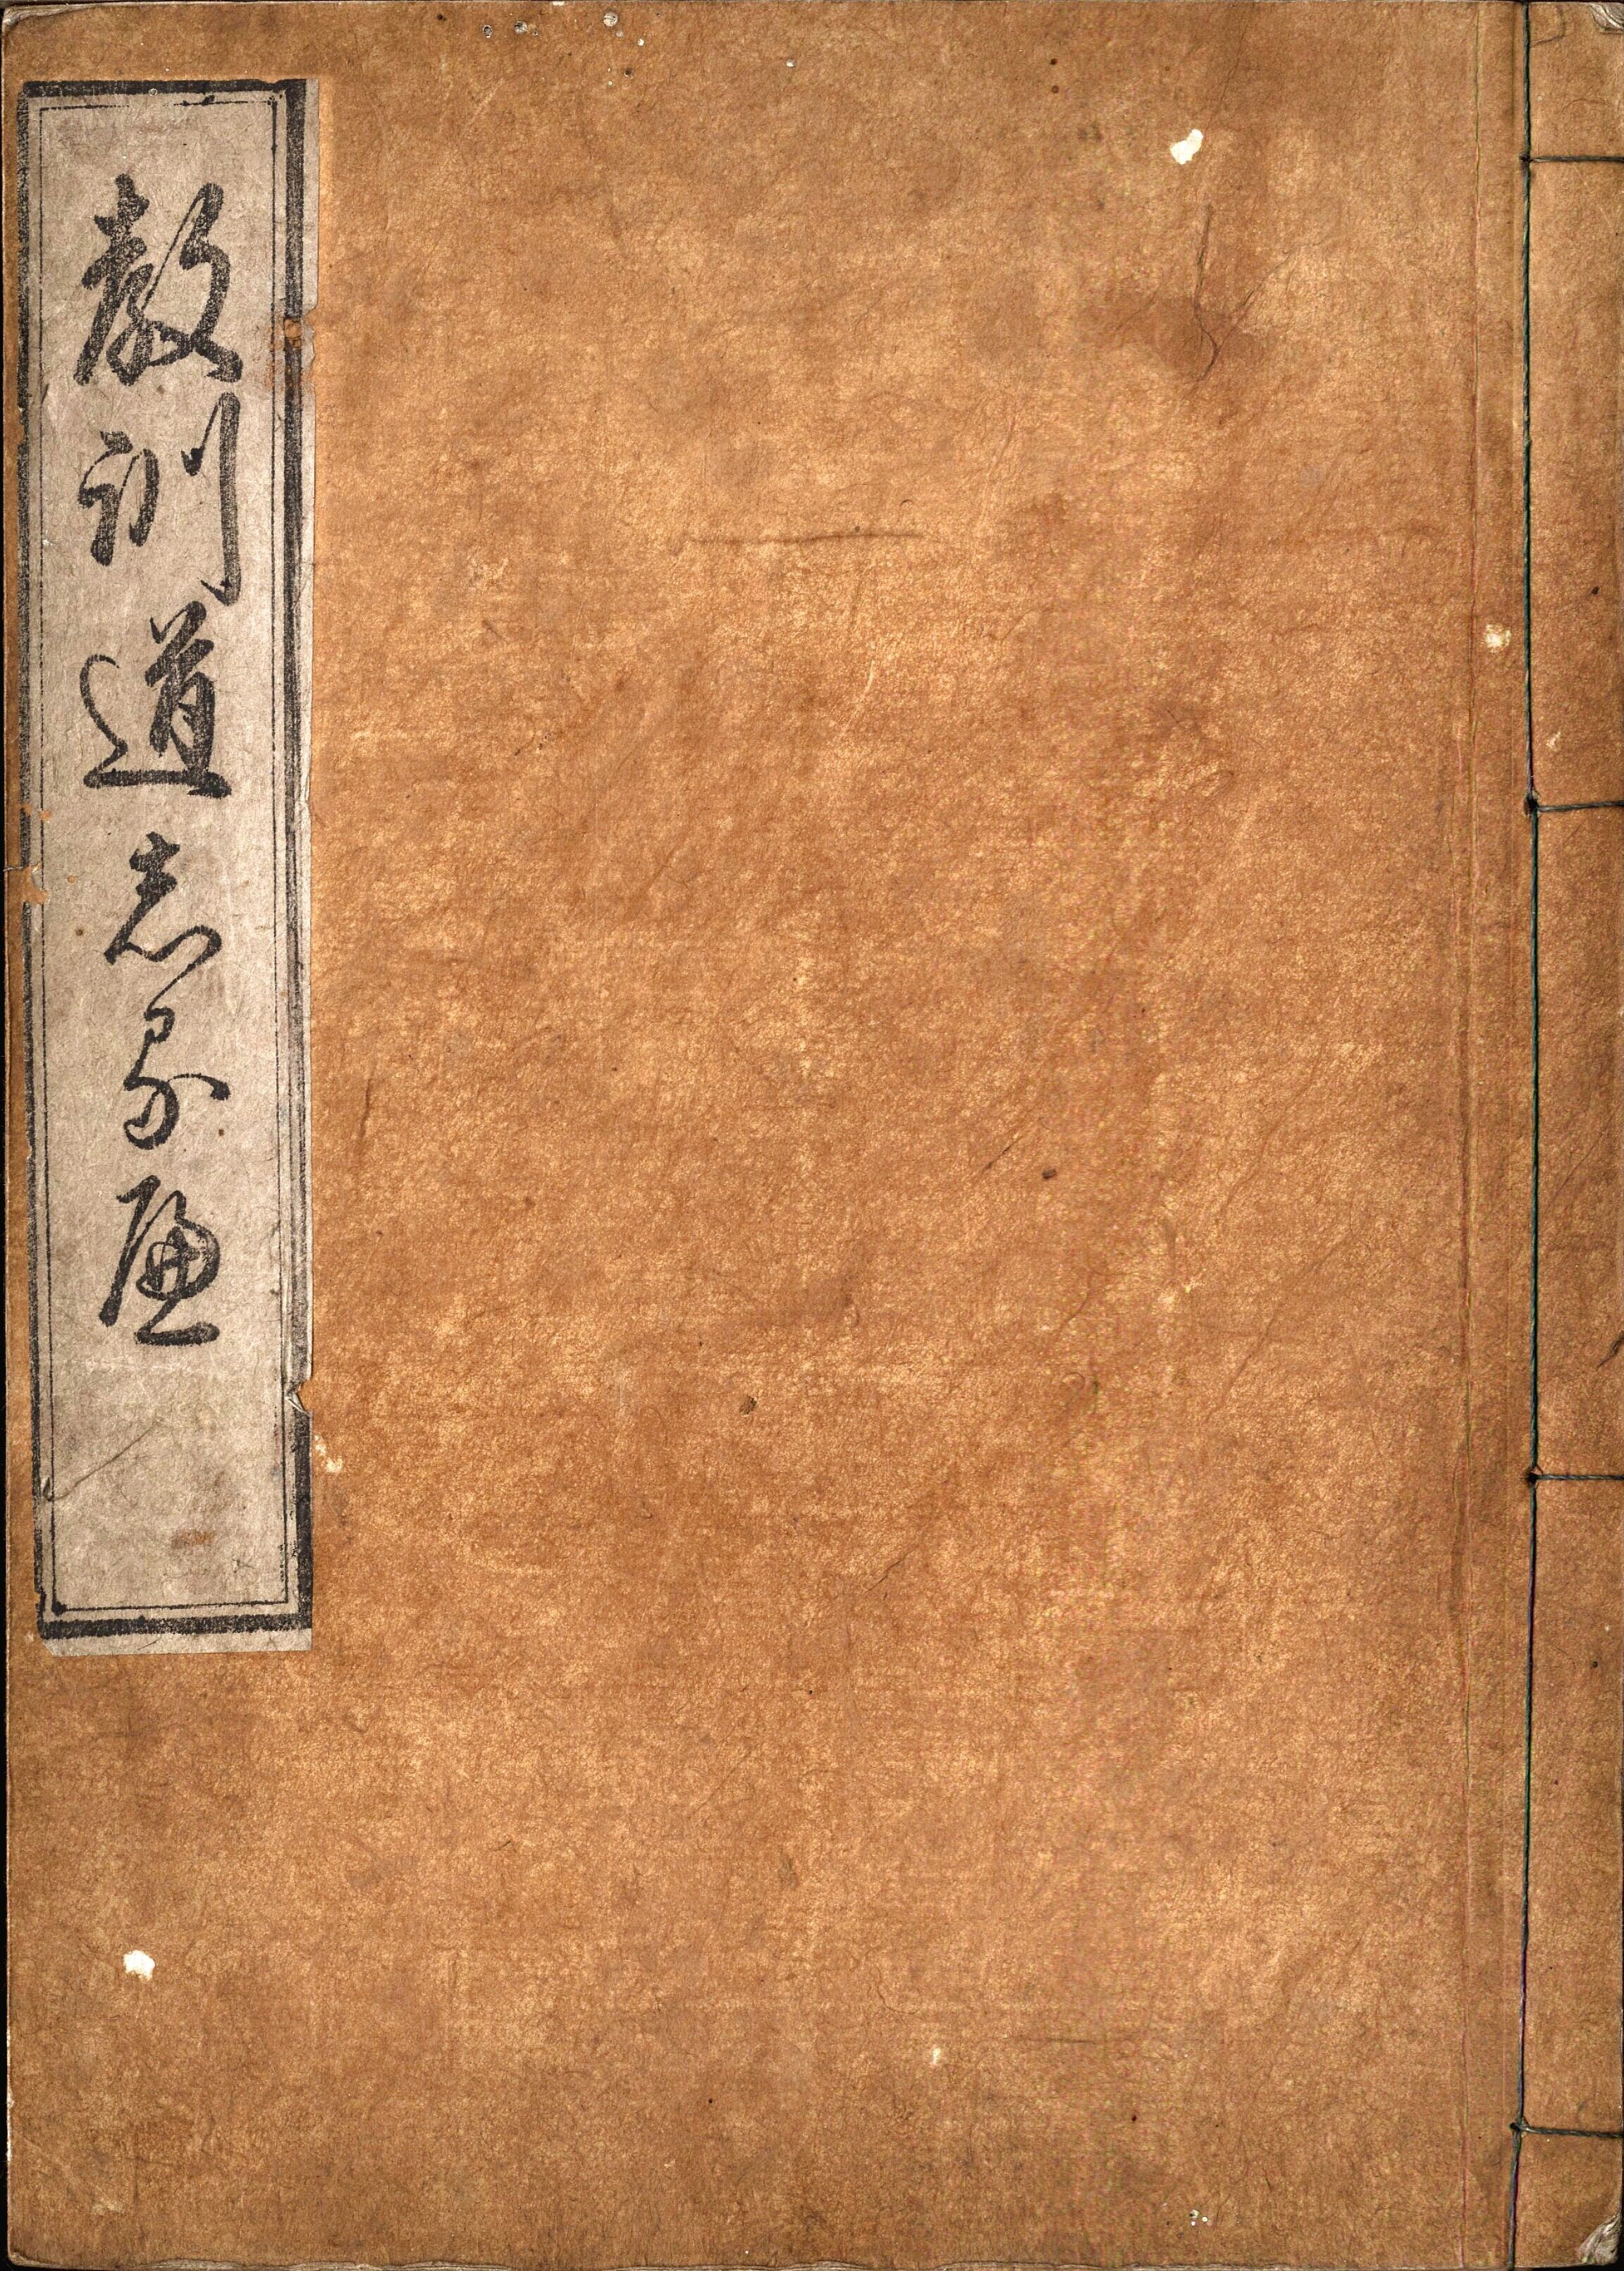 教訓道志る遍